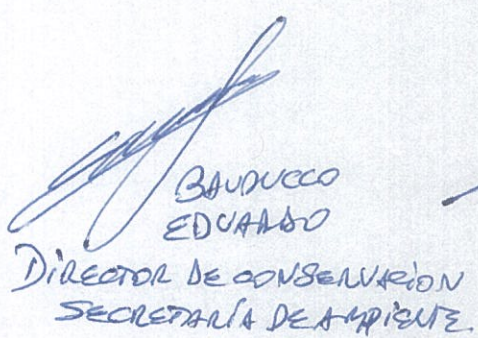 BAUDUCCO
EDUARDO
DIRECTOR DE CONSERVACIÓN
SECRETARÍA DE AMBIENTE